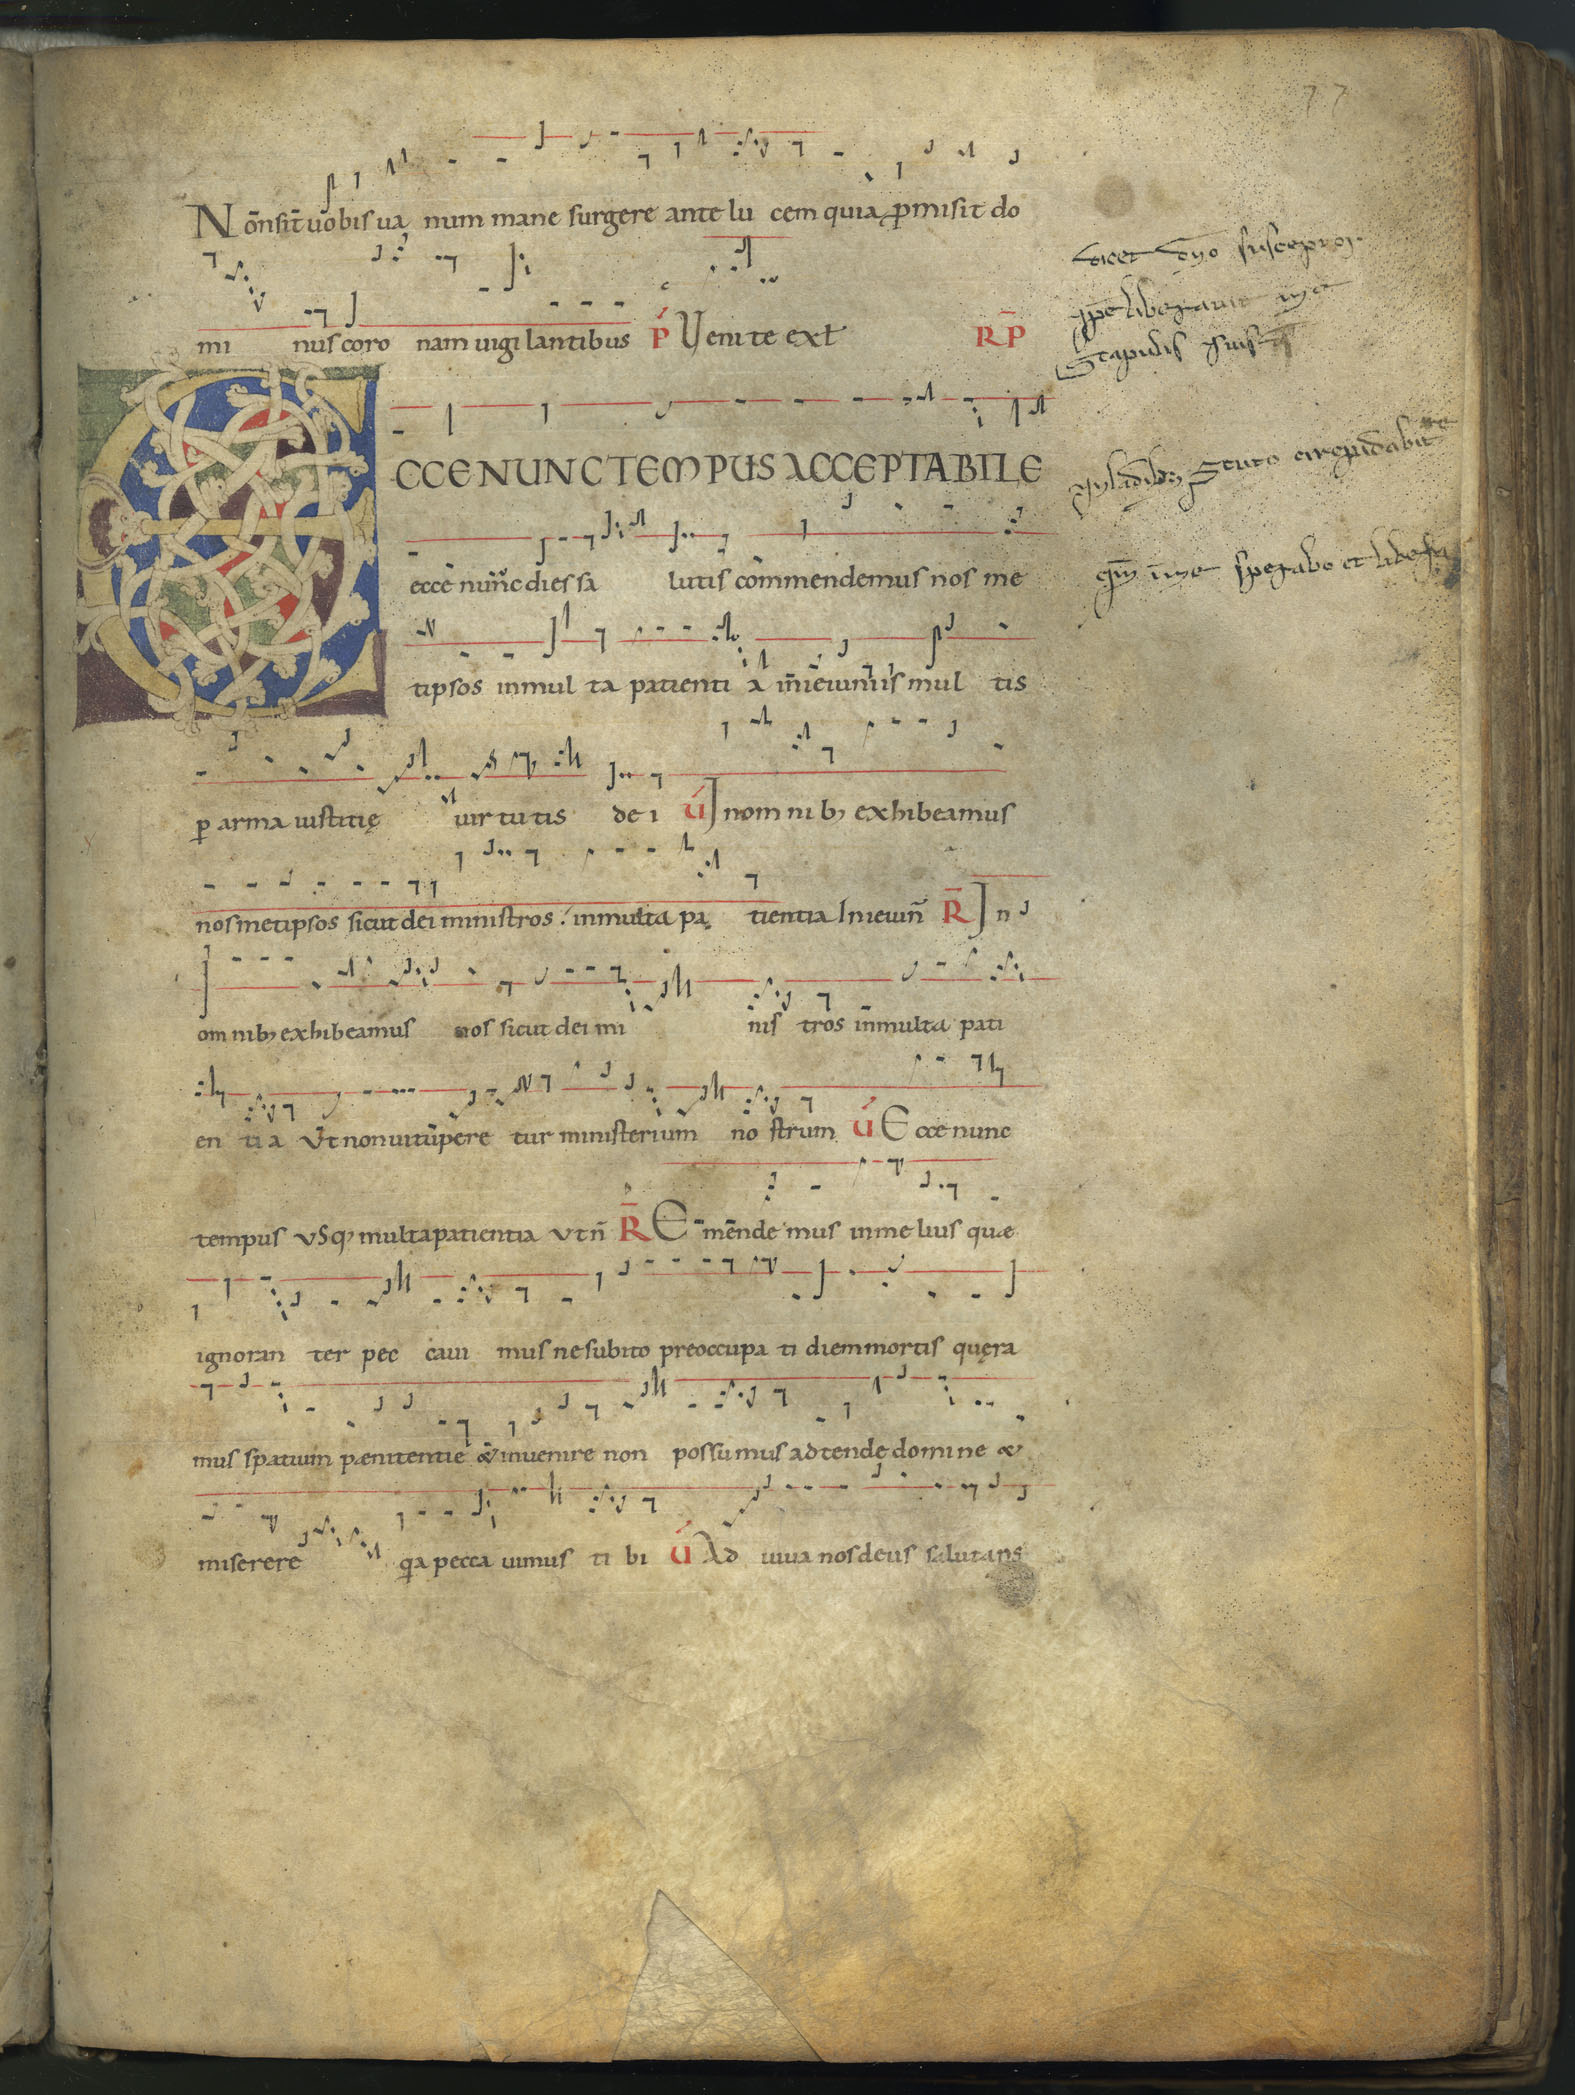 77
Nōnsit̄ uobis ua num mane surgere ante lu cem quia p̄misit do
mi nus coro nam uigi lantibus P̄ Uenite exł R̄P
dicet dn̄o susceptor
ip̄e liberauit me
Scapulis suis
ECCE NUNC TEMPUS ACCEPTABILE
Scuto circu̅dabit te
ecce nunc dies sa lutis cōmmendemus nos me
qm̄ in me sperabo et libera
tipsos in mul ta patienti a in̄ ieiuniis mul tis
ꝑ arma iustitię uir tu tis de i V́ In om ni bꝫ exhibeamus
nosmetipsos sicut dei ministros . in multa pa tientia In ieiuñ R̄ In
om nibꝫ exhibeamus nos sicut dei mi nis tros in multa pati
en ti a Ut non uitūpere tur ministerium no strum V́ E cce nunc
tempus usqꝫ multa patientia ut ñ R̄ E mēnde mus in me lius quæ
ignoran ter pec caui mus ne subito preoccupa ti diem mortis quęra
mus spatium pænitentie & inuenire non possumus adtende domine &
miserere q̄a pecca uimus ti bi V́ Ad iuua nos deus salutaris